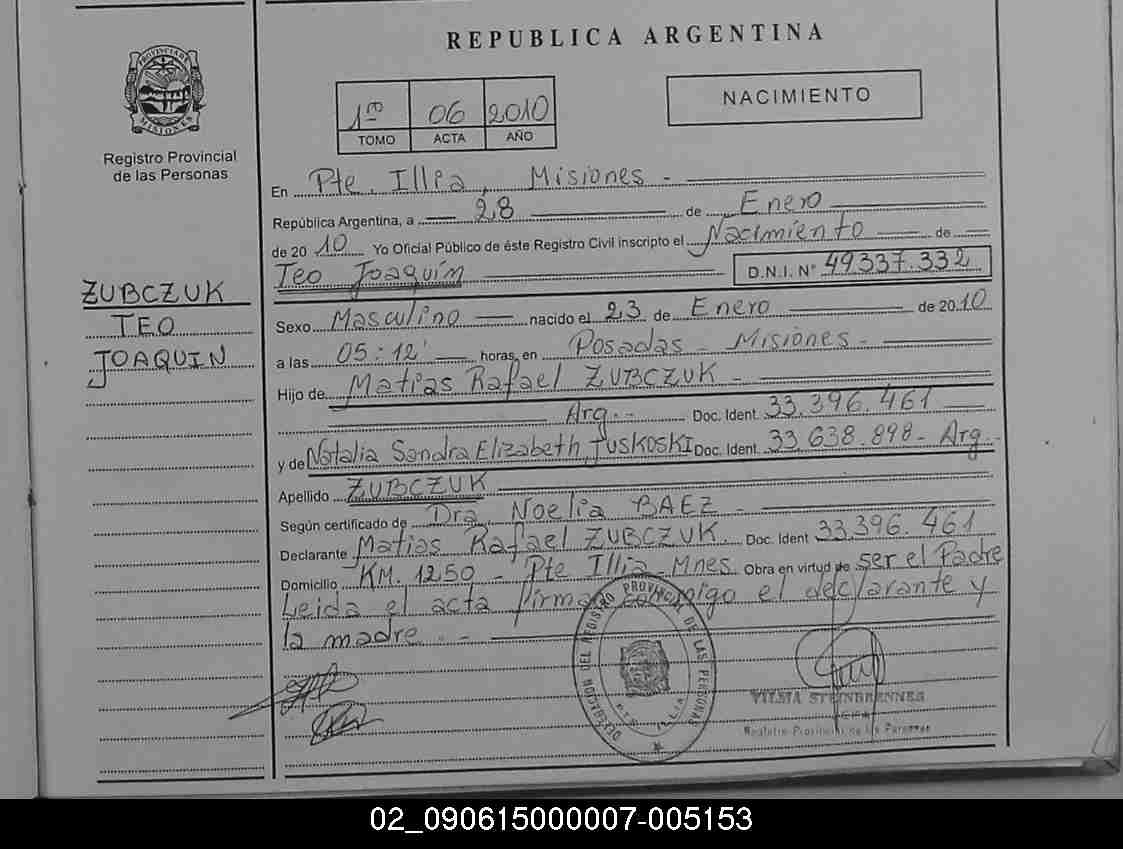 REPUBLICA ARGENTINA
PROVINCIA DE MISIONES
Registro Provincial
de las Personas
1ro 06 2010
TOMO ACTA AÑO
NACIMIENTO
En Pte. Illia, Misiones -
República Argentina, a 28 de Enero
de 2010 Yo Oficial Público de éste Registro Civil inscripto el Nacimiento de
Teo Joaquín D.N.I. N° 49337.332
ZUBCZUK
TEO
JOAQUIN
Sexo Masculino nacido el 23 de Enero de 2010
a las 05:12' horas, en Posadas - Misiones -
Hijo de Matias Rafael ZUBCZUK -
Arg.- Doc. Ident. 33.396.461
y de Natalia Sandra Elizabeth JUSKOSKI Doc. Ident. 33.638.898 - Arg.-
Apellido ZUBCZUK
Según certificado de Dra. Noelia BAEZ -
Declarante Matias Rafael ZUBCZUK. Doc. Ident 33.396.461
Domicilio KM. 1250 - Pte Illia - Mnes. Obra en virtud de ser el Padre
Leida el acta firma conmigo el declarante y
la madre. -
DELEGACION DEL REGISTRO PROVINCIAL DE LAS PERSONAS
PTE ILLIA
VILMA STEINBRENNER
Registro Provincial de las Personas
02_090615000007-005153